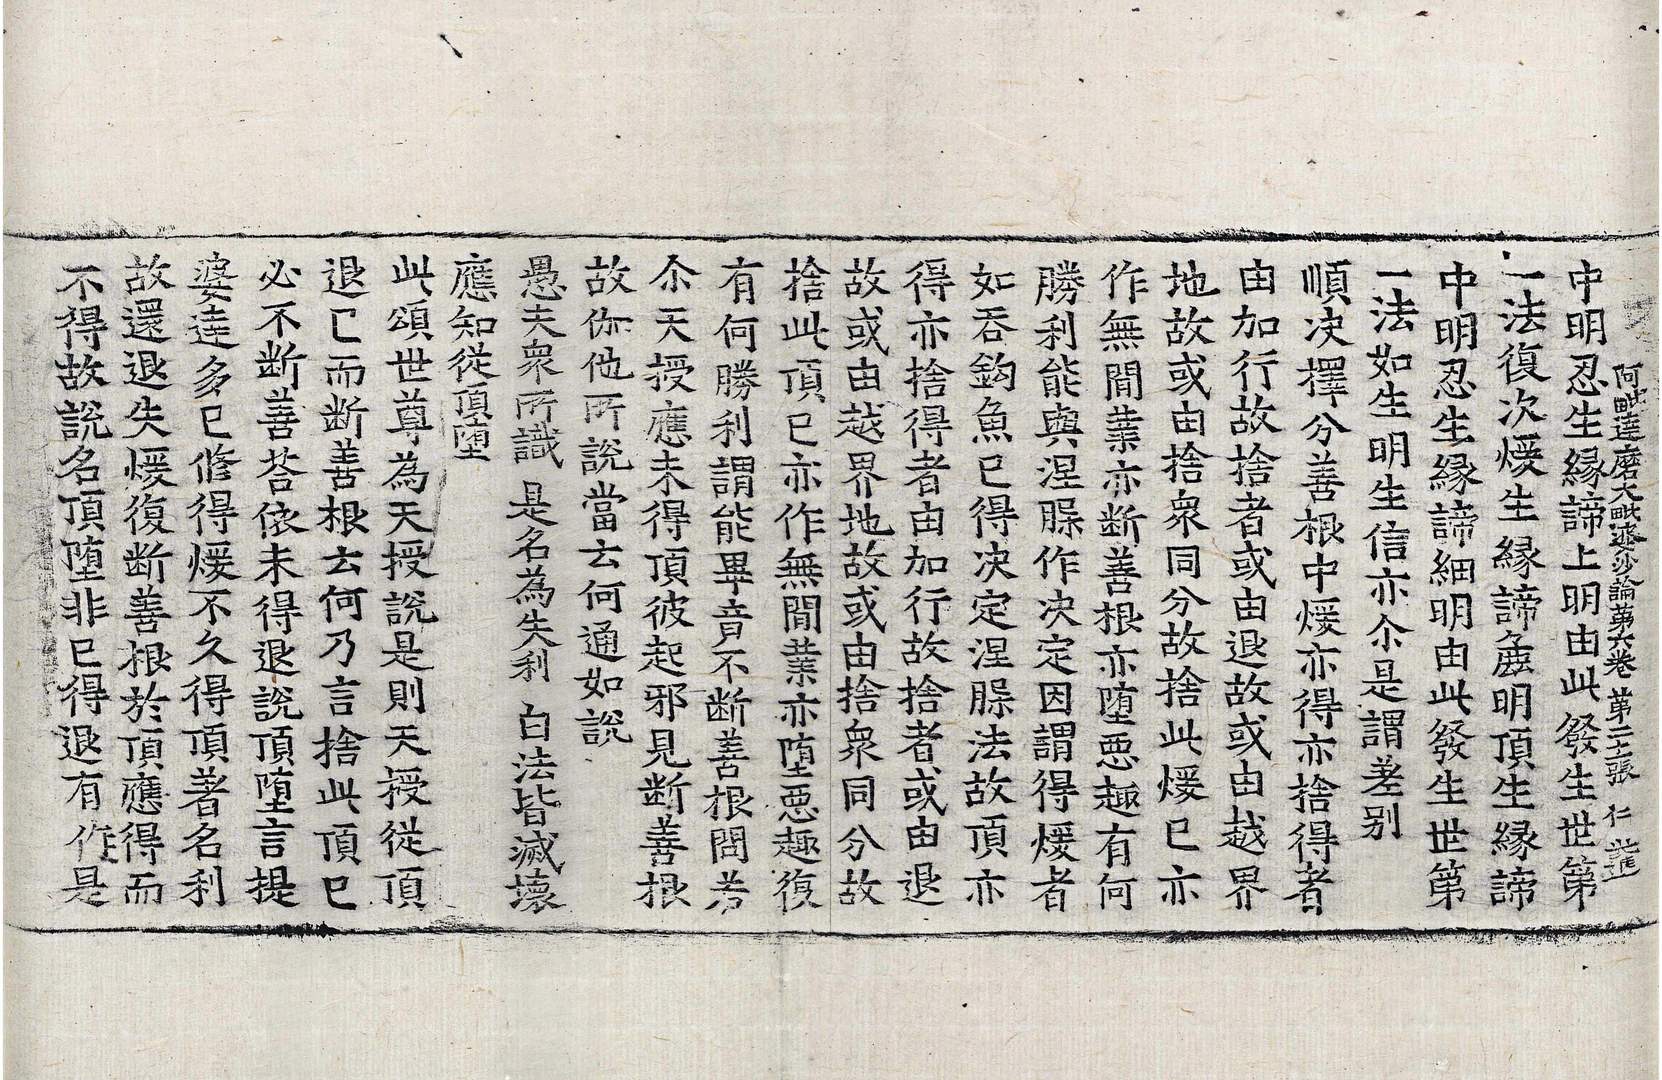 阿毗達磨大毗婆沙論第六卷 第二十張 仁
中明忍生緣諦上明由此發生世第
一法復次煖生緣諦麁明頂生緣諦
中明忍生緣諦細明由此發生世第
一法如生明生信亦尒是謂差别
順决擇分善根中煖亦得亦捨得者
由加行故捨者或由退故或由越界
地故或由捨衆同分故捨此煖已亦
作無閒業亦断善根亦堕惡趣有何
勝利能與涅槃作决定因謂得煖者
如吞鈎魚已得决定涅槃法故頂亦
得亦捨得者由加行故捨者或由退
故或由越界地故或由捨衆同分故
捨此頂已亦作無閒業亦堕惡趣復
有何勝利謂能畢竟不断善根問若
尒天授應未得頂彼起邪見断善根
故伽他所說當云何通如說
愚夫衆所識 是名為失利 白法皆滅壞
應知從頂堕
此頌世尊為天授說是則天授從頂
退已而断善根云何乃言捨此頂已
必不断善荅依未得退說頂堕言提
婆達多已脩得煖不久得頂著名利
故還退失煖復断善根於頂應得而
不得故說名頂堕非已得退有作是